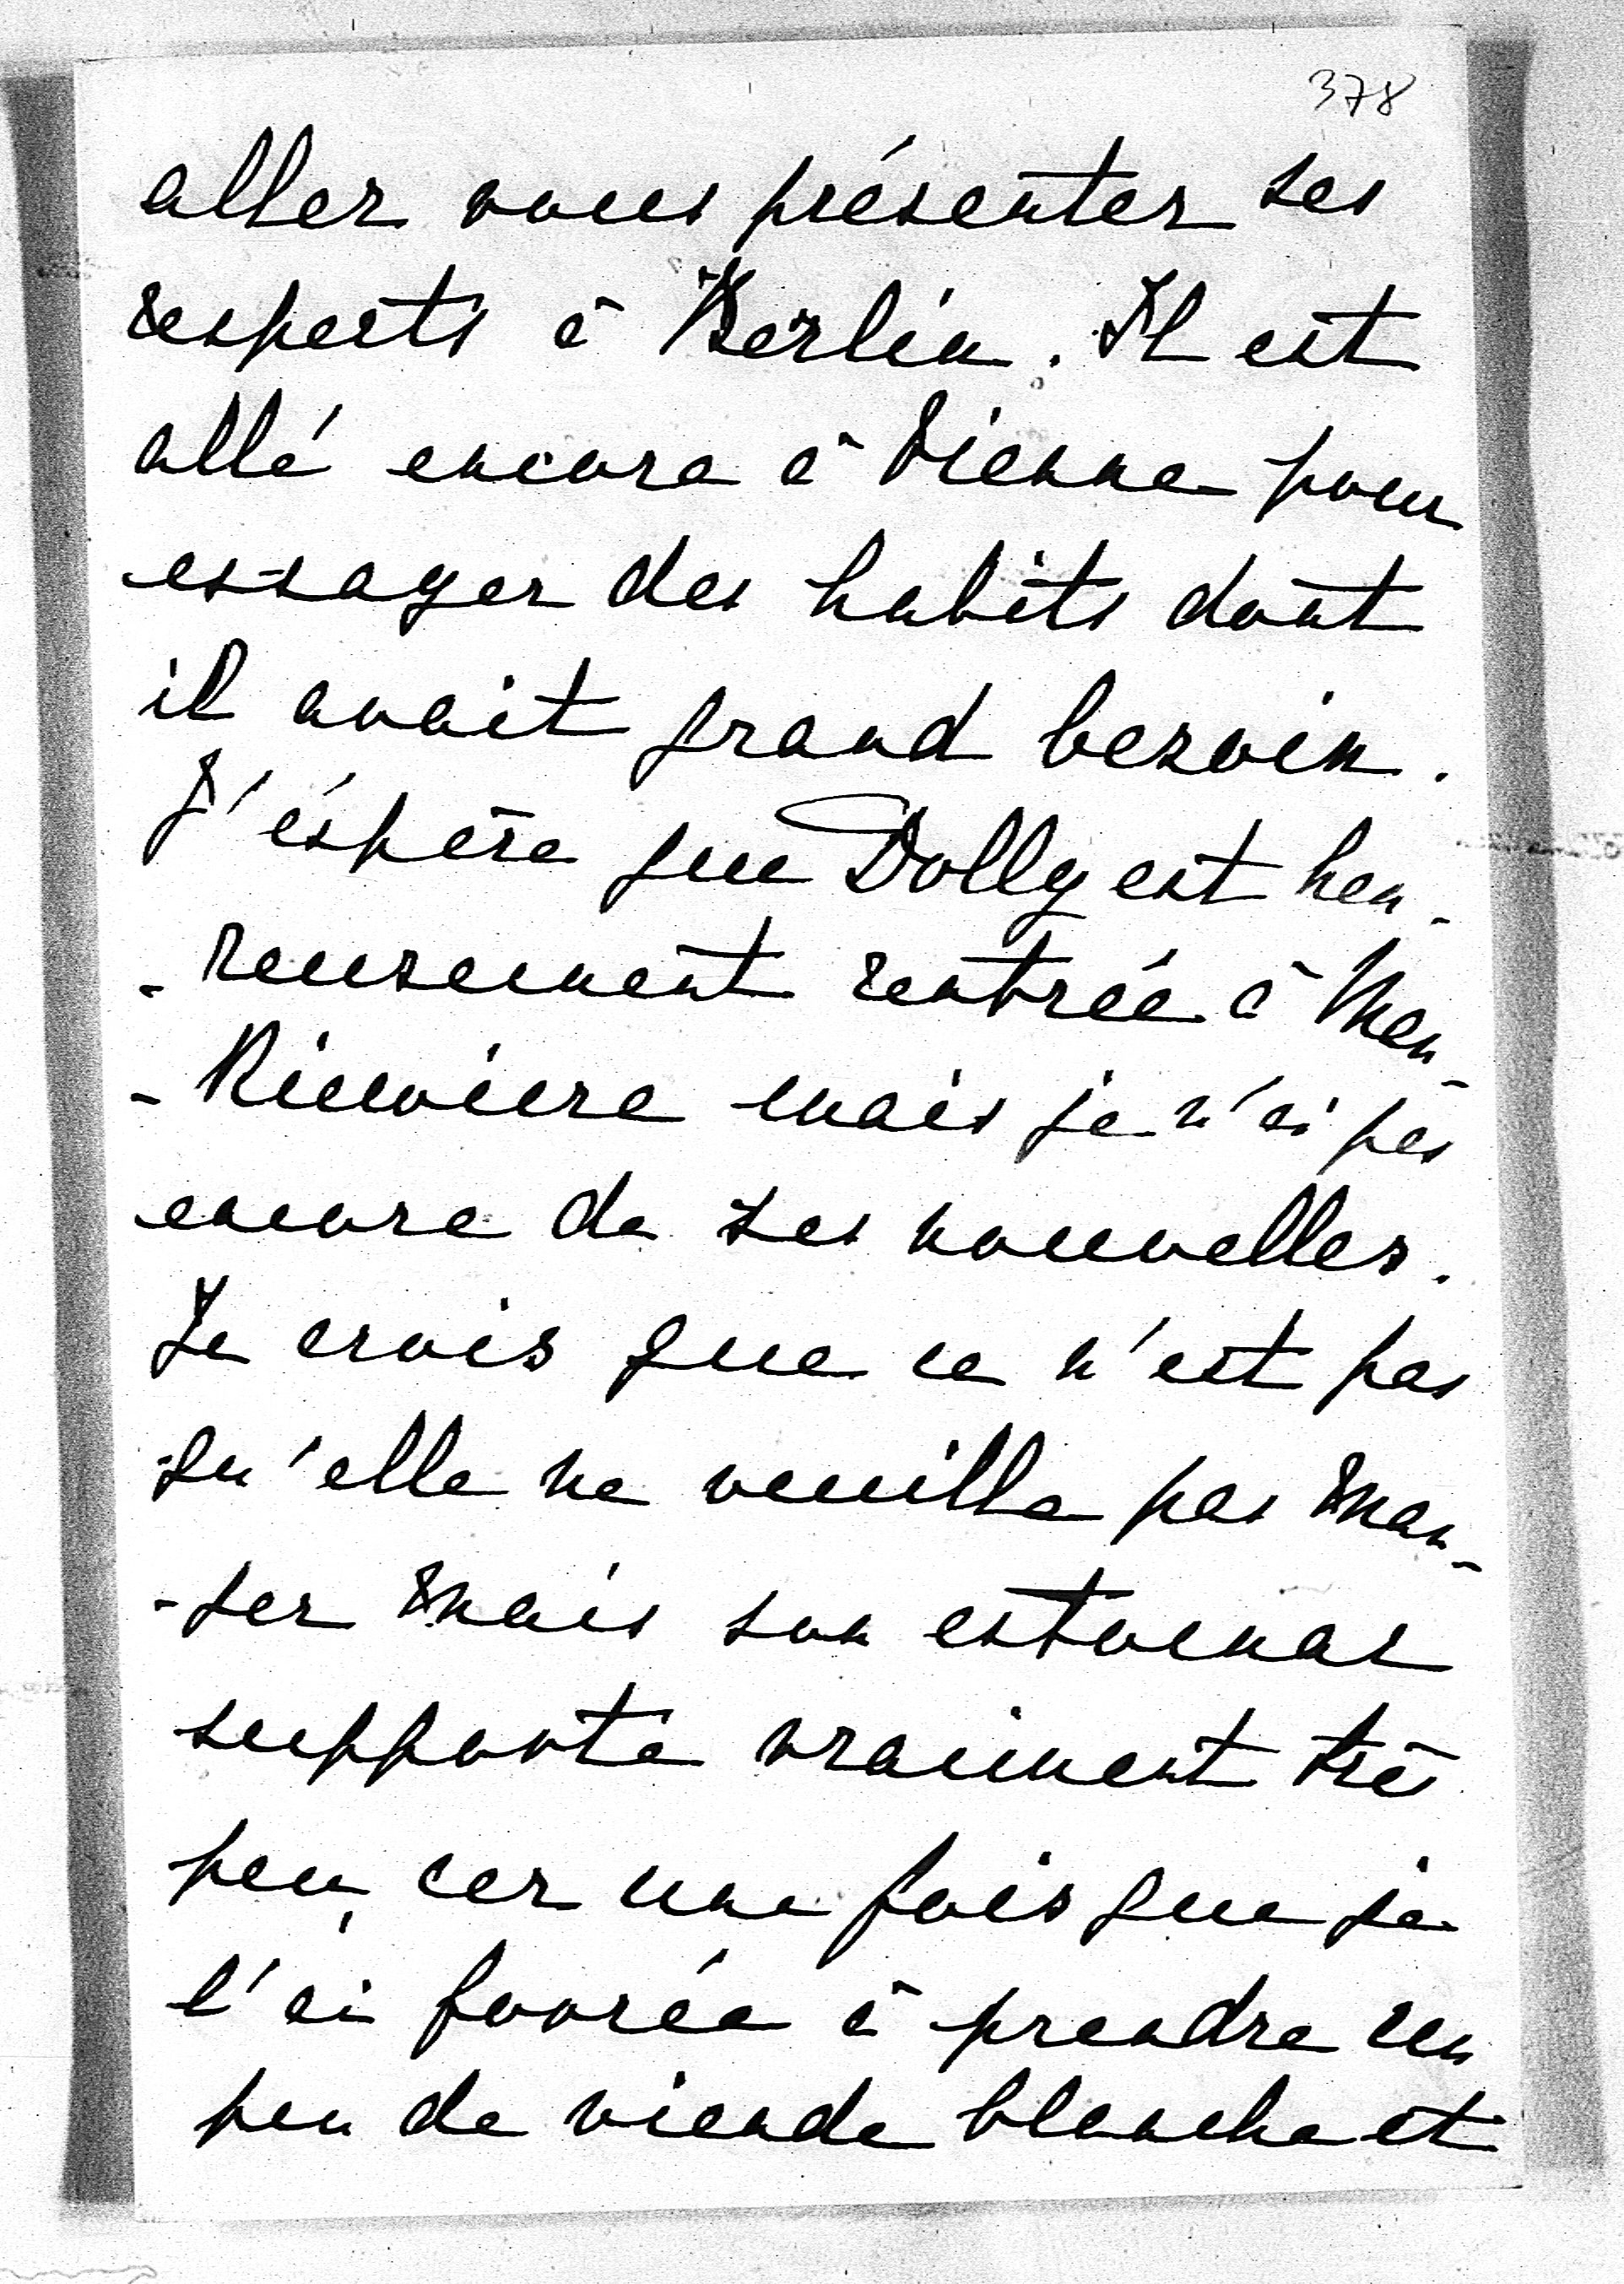 378
aller vous présenter ses
respects à Berlin. Il est
allé encore à Vienne pour
essayer des habits dont
il avait grand besoin.
J'éspère que Dolly est heu-
-reusement rentrée à Man-
-Rieuviere mais je n'ai pas
encore de ses nouvelles.
Je crois que ce n'est pas
qu'elle ne veuille pas man-
-ger mais son estomac
supporte vraiment très
peu, car une fois que je
l'ai forcée à prendre un
peu de viande blanche et